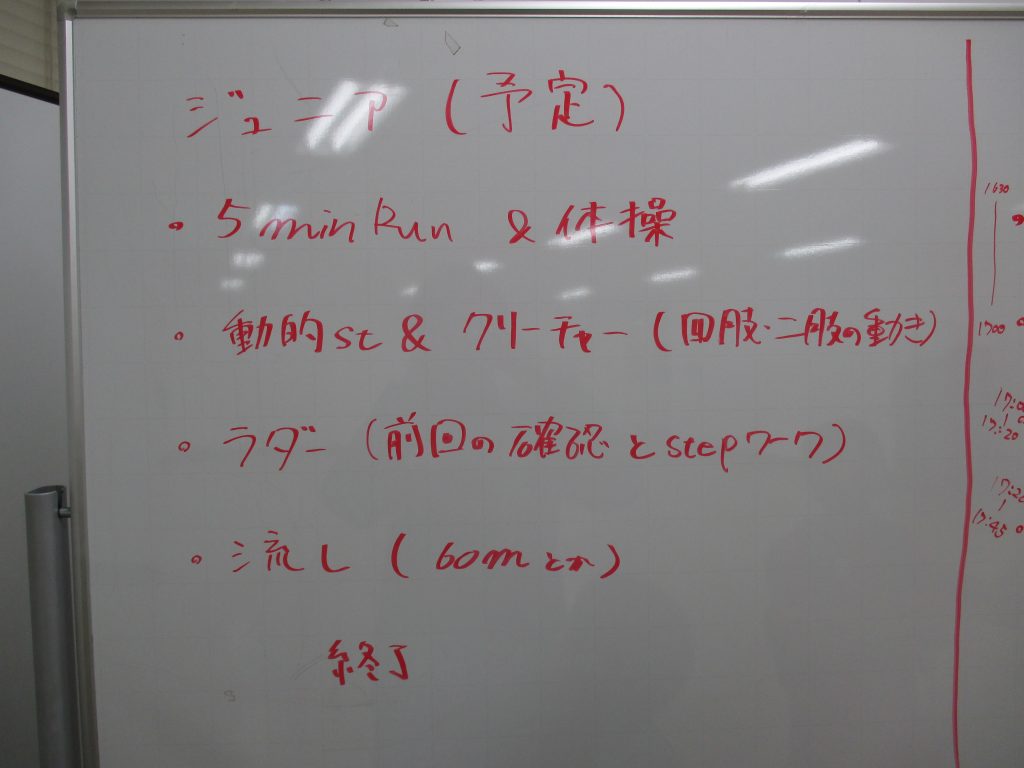 ジュニア (予定)
・5min Run & 体操
・動的st & クリーチャー (四肢・二肢の動き)
・ラダー (前回の確認とstepワーク)
・流し (60mとか)
終了
1630
1700
17:20
17:20
17:45